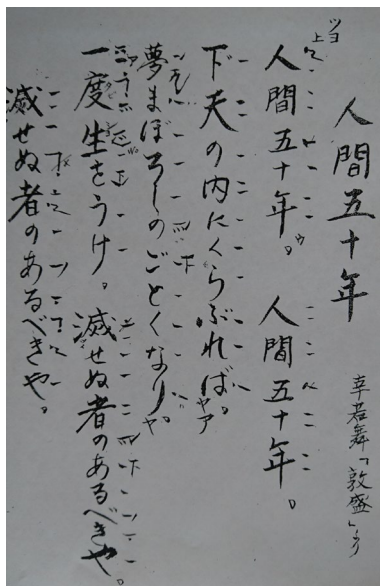 人間五十年
幸若舞「敦盛」より
ツヨ
上
人間五十年。 人間五十年。
下天の内にくらぶれば。
ヤア
夢まぼろしのごとくなり。
ヤ
一度生をうけ。滅せぬ者のあるべきや。
滅せぬ者のあるべきや。